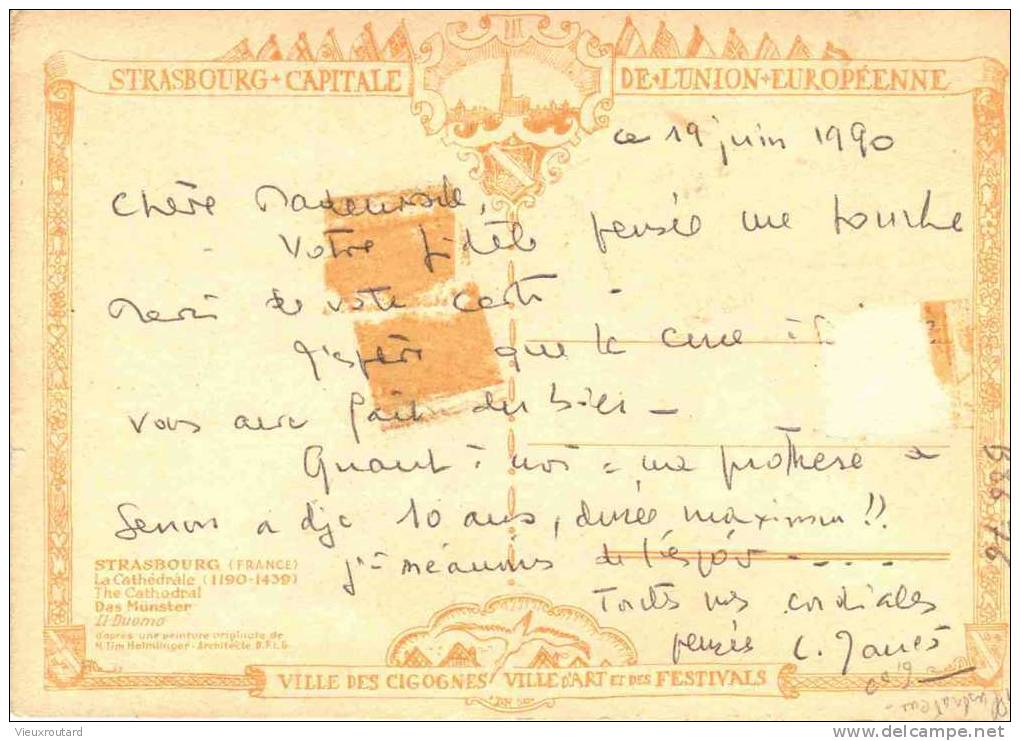 STRASBOURG + CAPITALE DE + L'UNION + EUROPÉENNE
ce 19 juin 1990
Chère Mademoiselle,
Votre fidèle pensée me touche
Merci de votre carte -
J'espère que la cure
vous aura fait du bien -
Quant à moi = ma prothèse
Genou a déjà 10 ans, durée maximum !!
j'ai néanmoins de l'espoir ....
Toutes mes cordiales
pensées C. James
STRASBOURG (FRANCE)
La Cathédrale (1190-1439)
The Cathedral
Das Münster
Il Duomo
d'après une peinture originale de
H. Tim Helmlinger - Architecte D.P.L.G.
VILLE DES CIGOGNES VILLE D'ART ET DES FESTIVALS
Vieuxroutard